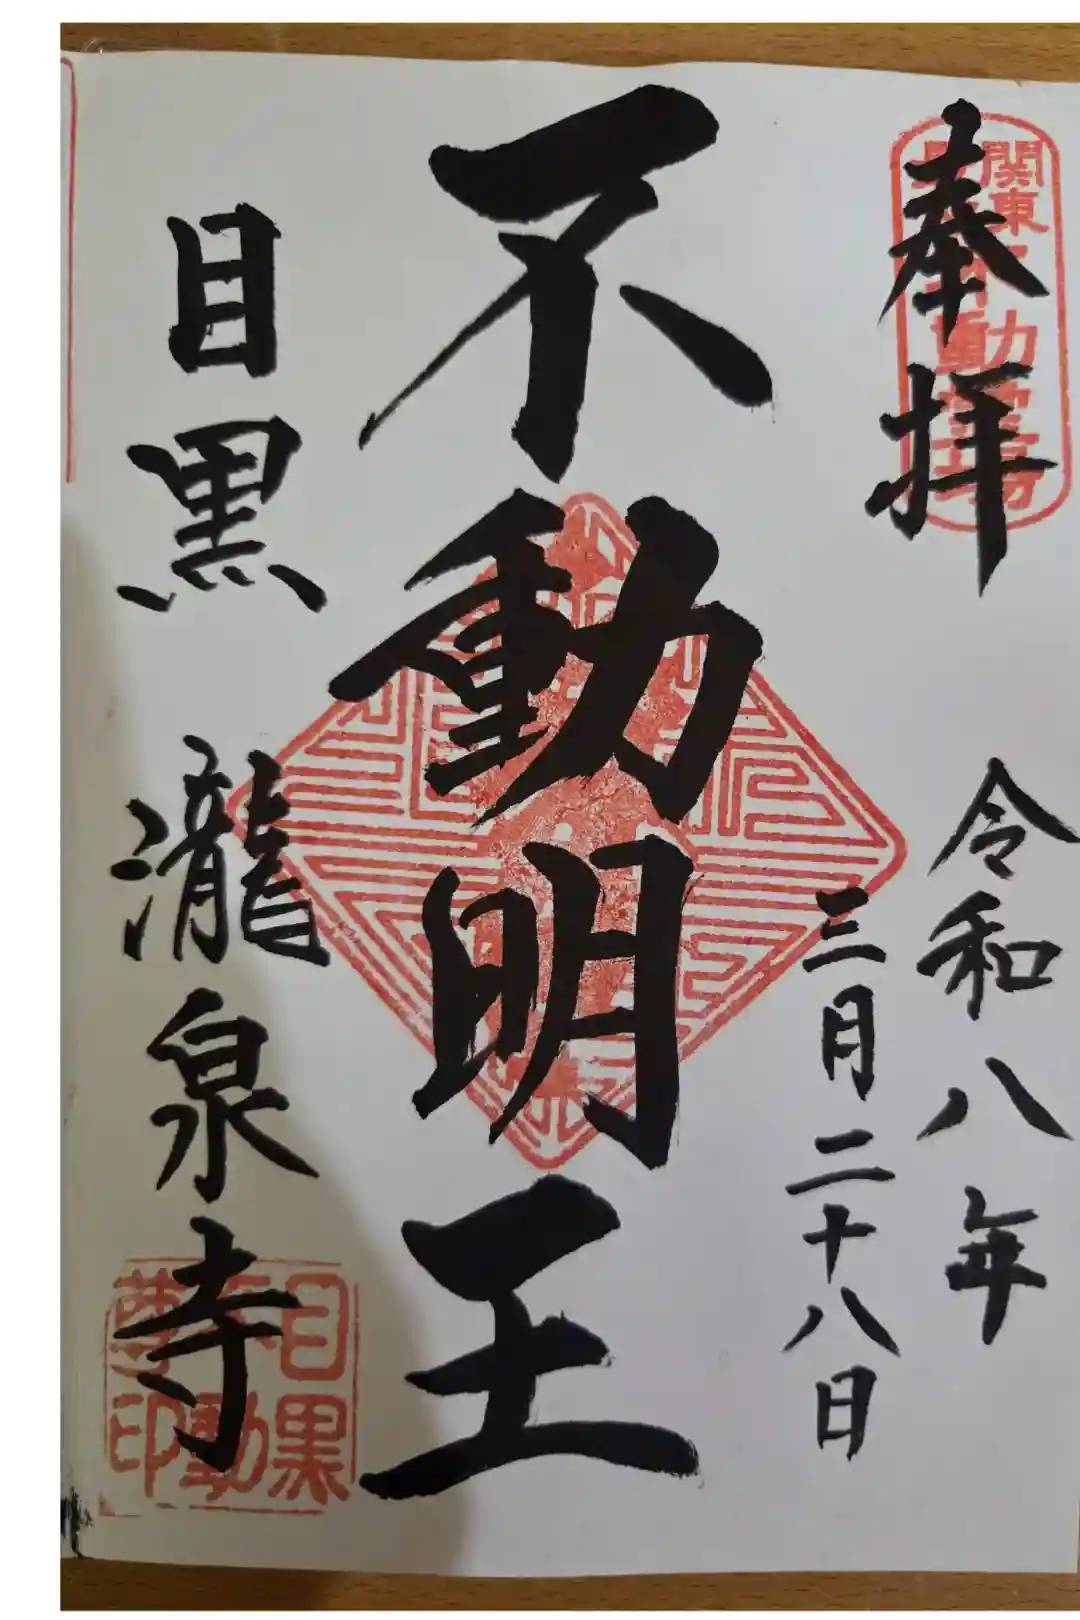 奉拝
令和八年
三月二十八日
不動明王
目黒 瀧泉寺
関東
目黒
不動
尊印